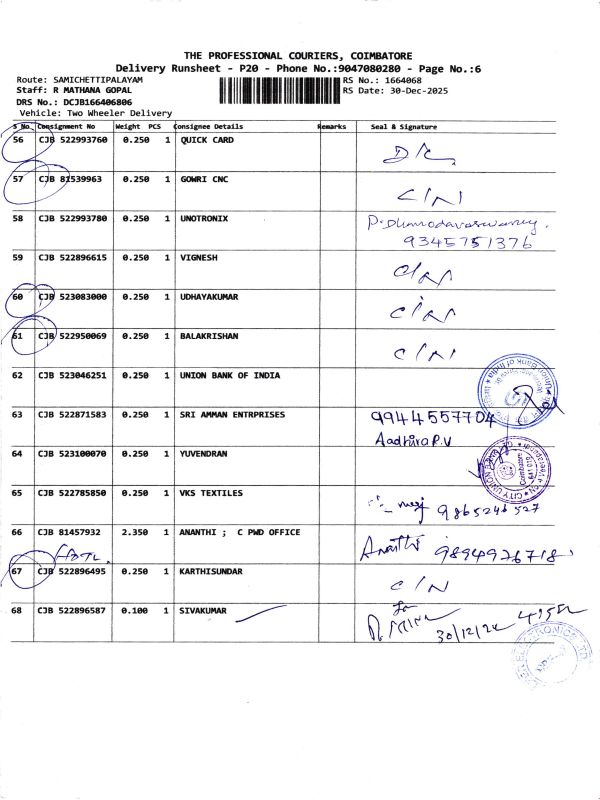 THE PROFESSIONAL COURIERS, COIMBATORE
Delivery Runsheet - P20 - Phone No.:9047080280 - Page No.:6
Route: SAMICHETTIPALAYAM RS No.: 1664068
Staff: R MATHANA GOPAL RS Date: 30-Dec-2025
DRS No.: DCJB166406806
Vehicle: Two Wheeler Delivery
S No. Consignment No Weight PCS Consignee Details Remarks Seal & Signature
56 CJB 522993760 0.250 1 QUICK CARD D/C
57 CJB 81539963 0.250 1 GOWRI CNC C/N
58 CJB 522993780 0.250 1 UNOTRONIX
9345751376
59 CJB 522896615 0.250 1 VIGNESH
60 CJB 523083000 0.250 1 UDHAYAKUMAR
61 CJB 522950069 0.250 1 BALAKRISHAN C/N
62 CJB 523046251 0.250 1 UNION BANK OF INDIA
Union Bank of India
63 CJB 522871583 0.250 1 SRI AMMAN ENTRPRISES 9944557704
Aadhira P.V
64 CJB 523100070 0.250 1 YUVENDRAN
CITY UNION BANK
Coimbatore
65 CJB 522785850 0.250 1 VKS TEXTILES
9865246527
66 CJB 81457932 2.350 1 ANANTHI ; C PWD OFFICE Ananthi 9894926718
67 CJB 522896495 0.250 1 KARTHISUNDAR C/N
68 CJB 522896587 0.100 1 SIVAKUMAR
30/12/24